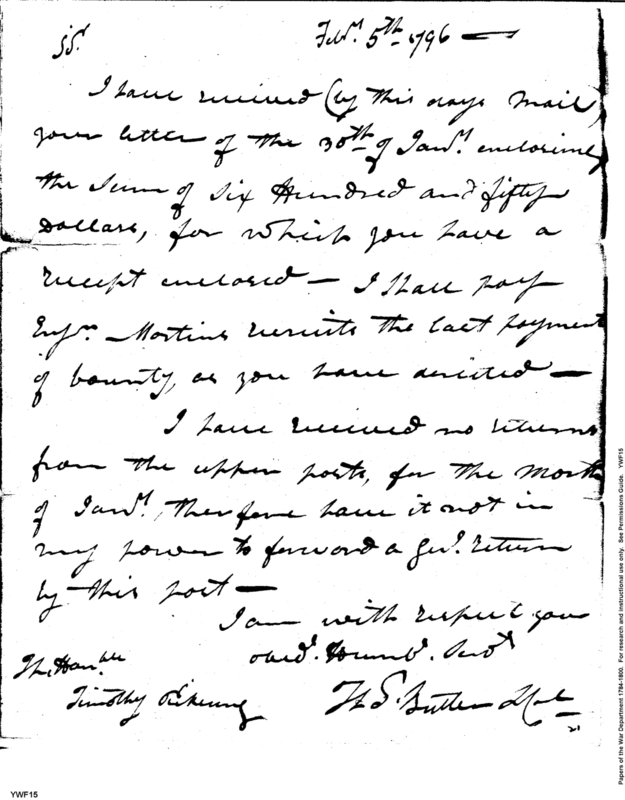 Sir
Feby. 5th 1796 —
I have received (by this days Mail)
your letter of the 30th of Jany. enclosing
the Sum of Six Hundred and fifty
Dollars, for which you have a
receipt enclosed — I Shall pay
Ensgn. Martins recruits the last payment
of bounty, as you have directed —
I have received no returns
from the upper posts, for the Month
of Jany., therefore have it not in
my power to forward a Genl. return
by this post —
I am with respect your
obed. Humbl. Servt
The Honble
Timothy Pickering
Ths. Butler
21
YWF15
Papers of the War Department 1784-1800. For research and instructional use only. See Permissions Guide. YWF15